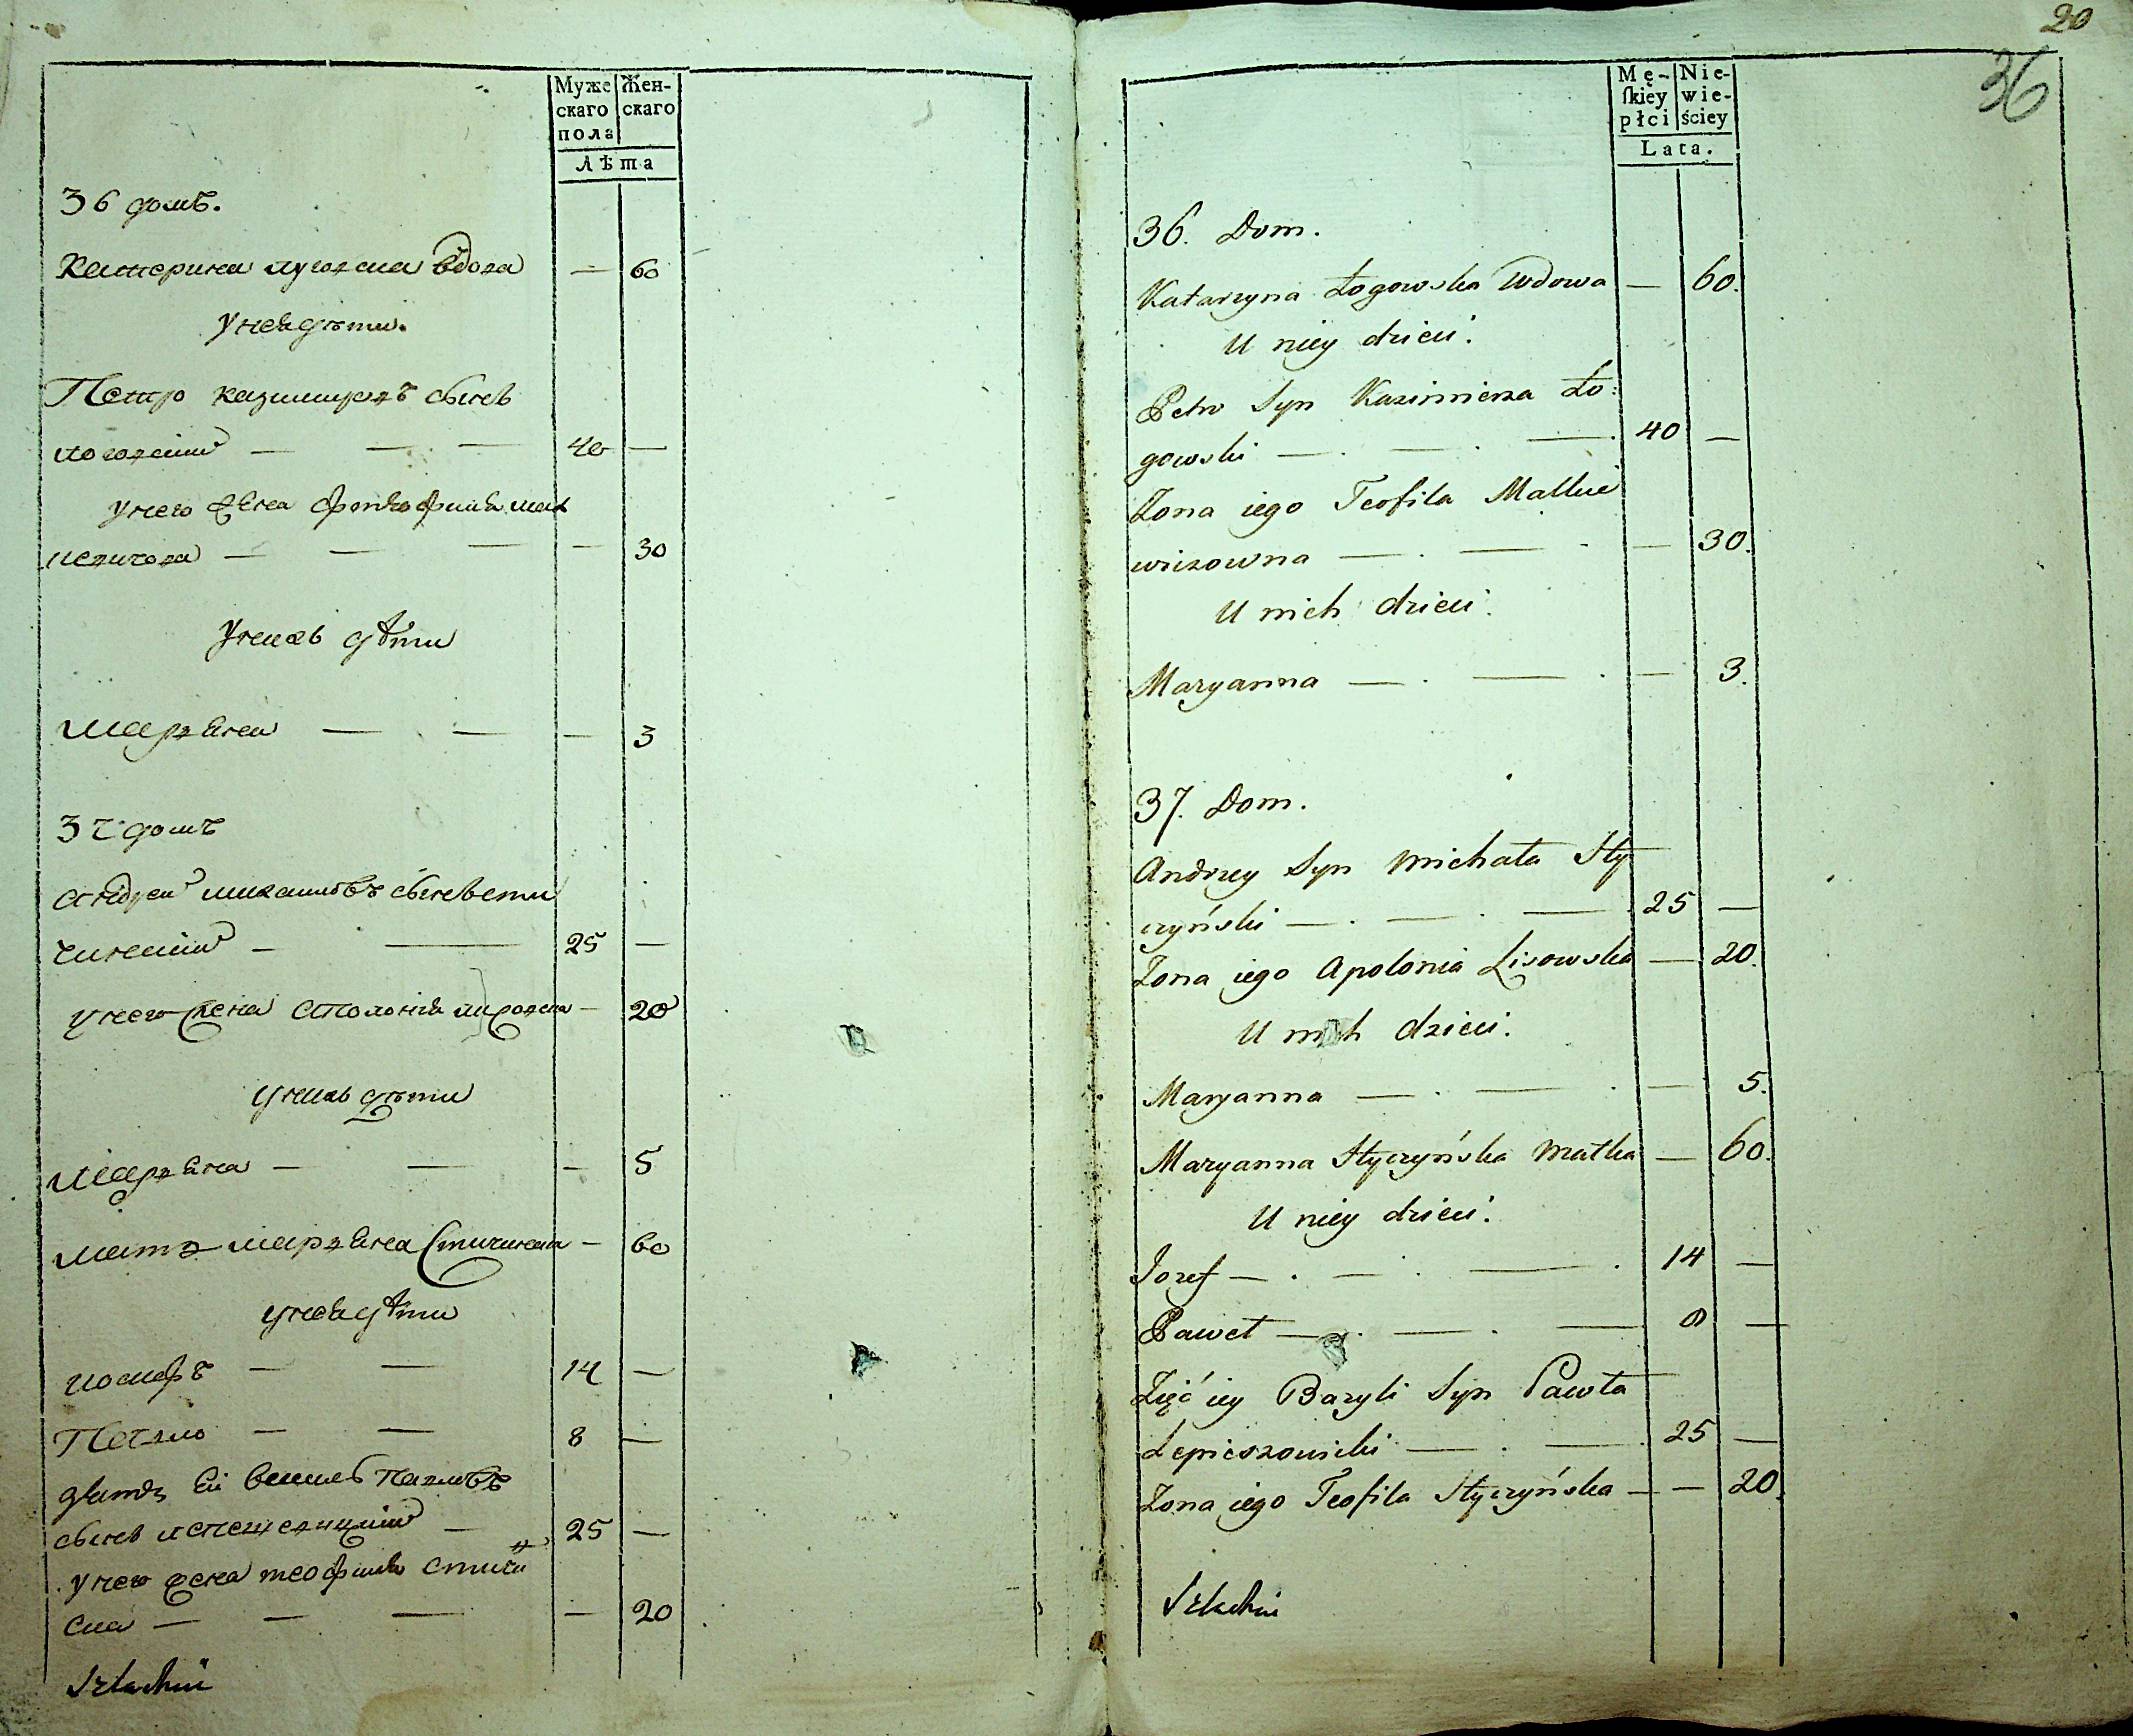 Муже
скаго
пола
Жен-
скаго
Лѣта
36 домъ.
Катерина луговска вдова — 60
У нея дѣти.
Петро казимировъ сынъ
логовскій — — — 40 —
у него жена
— — — — 30
У нихъ дѣти
Маръяна — — — 3
37 домъ
Андрей михаиловъ сынъ сти
чинскій — — 25 —
у него жена аполонія — 20
у нихъ дѣти
Маръяна — — — 5
мать маръяна Стичинска — 60
у нея дѣти
иосифъ — — 14 —
Павло — — 8 —
василь павловъ
сынъ — 25 —
у него жена теофила стичи
ска — — — — 20
Szlachui
20
36
Mę-
ſkiey
płci
Nie-
wie-
ściey
Lata.
36. Dom.
Katarzyna Łogowska Wdowa — 60.
U niey dzieci.
Petr Syn Kazimierza Ło-
gowski — . — . — . 40 —
Zona iego Teofila Malkie
wiczowna — . — - — 30.
U nich dzieci.
Maryanna — . — . — 3.
37. Dom.
Andrzey Syn Michała Sty
czyński — . — . — . 25 —
Zona iego Apolonia Lisowska — 20.
U nich dzieci.
Maryanna — . — . — 5.
Maryanna Styczyńska Matka — 60.
U niey dzieci.
Jozef — . — . — . 14 —
Paweł — . — . — 8 —
Zięć iey Bazyli Syn Pawła
Lepieszowicki — . — . 25 —
Zona iego Teofila Styczyńska — — 20.